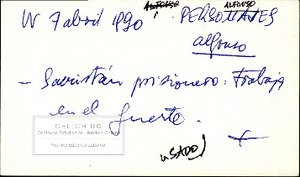 W 7 abril 1990 PERSONAJES
ALFONSO
alfonso
- Sacristán prisionero. Trabaja
en el fuerte.
USADO
CELICH UC